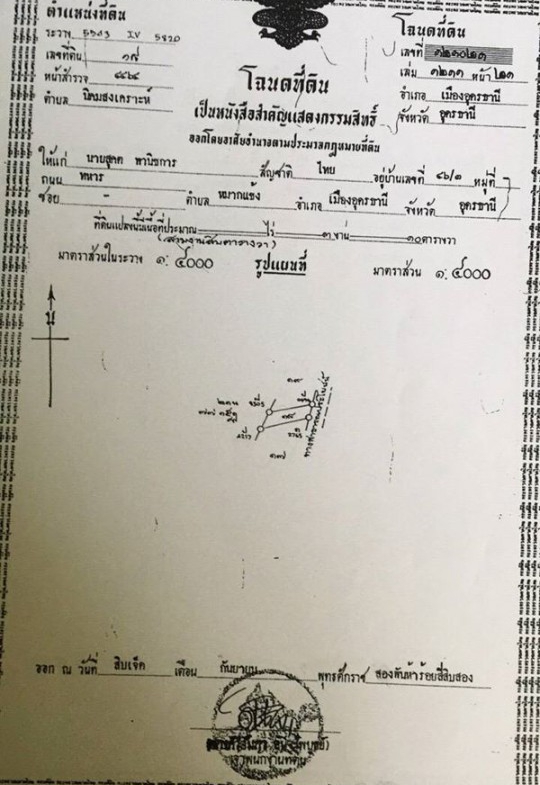 ตำแหน่งที่ดิน
ระวาง 5543 IV 5820
เลขที่ดิน ๑๙
หน้าสำรวจ ๔๔๖๔
ตำบล นิคมสงเคราะห์
โฉนดที่ดิน
เลขที่ ๓๒๑๐๒๑
เล่ม ๓๒๑๑ หน้า ๒๑
อำเภอ เมืองอุดรธานี
จังหวัด อุดรธานี
โฉนดที่ดิน
เป็นหนังสือสำคัญแสดงกรรมสิทธิ์
ออกโดยอาศัยอำนาจตามประมวลกฎหมายที่ดิน
ให้แก่ นายสุคต พานิชการ สัญชาติ ไทย อยู่บ้านเลขที่ ๔๖/๑ หมู่ที่ -
ถนน ทหาร
ซอย - ตำบล หมากแข้ง อำเภอ เมืองอุดรธานี จังหวัด อุดรธานี
ที่ดินแปลงนี้มีเนื้อที่ประมาณ ไร่ ๓ งาน ๑๐ ตารางวา
(สามงานสิบตารางวา)
มาตราส่วนในระวาง ๑: ๔๐๐๐ รูปแผนที่ มาตราส่วน ๑: ๔๐๐๐
น
๑๙
ทางสาธารณประโยชน์
๑๓๗
ออก ณ วันที่ สิบเจ็ด เดือน กันยายน พุทธศักราช สองพันห้าร้อยสี่สิบสอง
เจ้าพนักงานที่ดิน